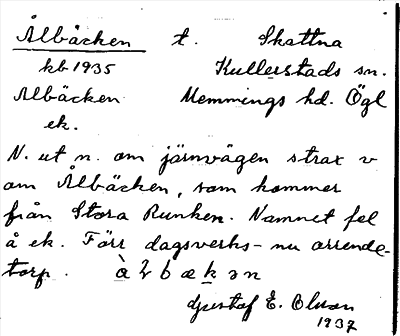 Ålbäcken t. Skattna
kb 1935 Kullerstads sn.
Ålbäcken Memmings hd. Ögl
ek.
N. ut n. om järnvägen strax v
om Ålbäcken, som kommer
från Stora Runken. Namnet fel
å ek. Förr dagsverks- nu arrende-
torp. 
Gustaf E. Olson
1937